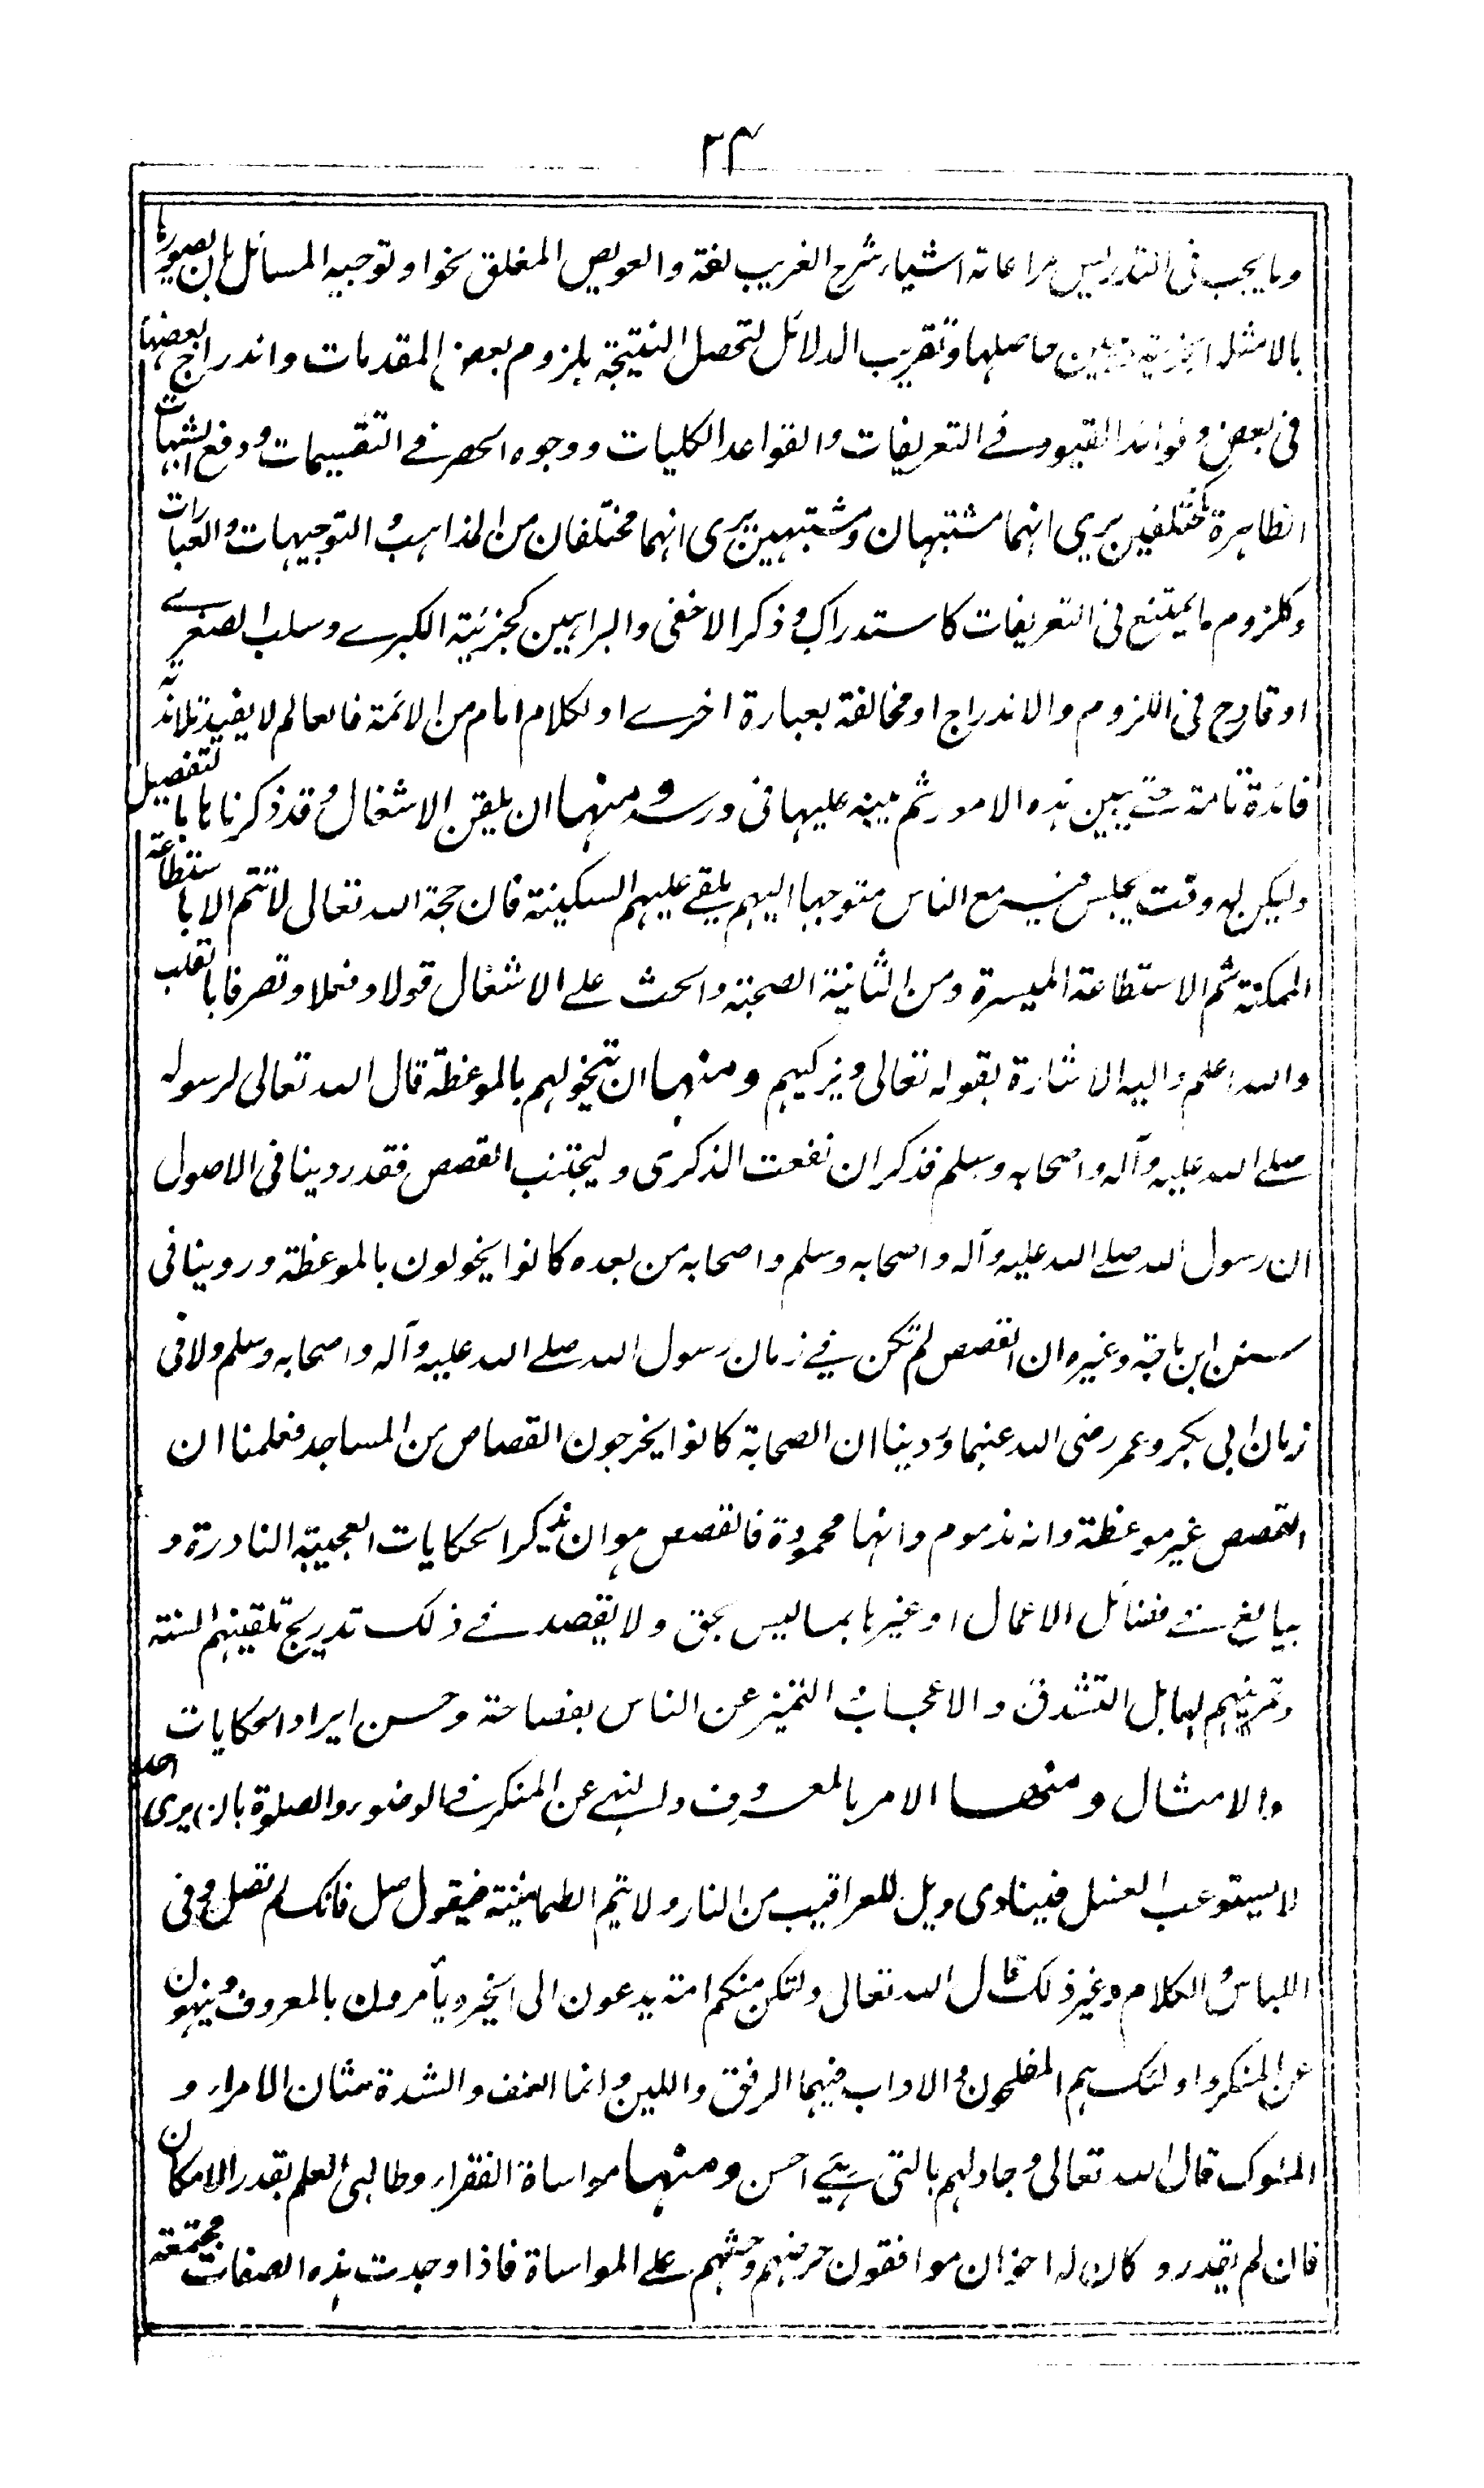 ٢٤
وما يجب فى التدريس مراعاته اشياء شرح الغريب لغة والعويص المغلق نحوا وتوجيه المسائل بان يصورها
بالامثلة الجزئية حاصلها وتقريب الدلائل لتحصل النتيجة بلزوم بعض المقدمات واندراج بعضها
فى بعض وفوائد القيود فے التعريفات والقواعد الكليات ووجوه الحصر فے التقسيمات ودفع الشبهات
الظاهرة كمختلفين يرى انهما مشتبهان ومشتبهين يرى انهما مختلفان من المذاهب والتوجيهات والعبارات
وكلزوم ما يمتنع فى التعريفات كاستدراك وذكر الاخفى والبراهين كجزئية الكبرے وسلب الصغرے
او قادح فى اللزوم والاندراج او مخالفة بعبارة اخرے او لكلام امام من الائمة فالعالم لا يفيد تلاندته
فائدة تامة حتے يبين هذه الامور ثم يبنه عليها فى درسه ومنها ان يلقن الاشغال وقد ذكرناها بالتفصيل
وليكن له وقت يجلس فيه مع الناس متوجها اليهم يلقے عليهم السكينة فان حجة الله تعالى لا تتم الا باستطاعة
الممكنة ثم الاستطاعة الميسرة ومن الثانية الصحبة والحث علے الاشغال قولا وفعلا وتصرفا بالقلب
والله اعلم واليه الاشارة بقوله تعالى ويزكيهم ومنها ان يتخولهم بالموعظة قال الله تعالى لرسوله
صلے الله عليه وآله واصحابه وسلم فذكر ان نفعت الذكرى وليجتنب القصص فقد روينا فى الاصول
ان رسول الله صلے الله عليه وآله واصحابه وسلم واصحابه من بعده كانوا يخولون بالموعظة وروينا فى
سنن ابن ماجة وغيره ان القصص لم تكن فے زمان رسول الله صلے الله عليه وآله واصحابه وسلم ولا فى
زمان ابى بكر وعمر رضى الله عنهما وروينا ان الصحابة كانوا يخرجون القصاص من المساجد فعلمنا ان
القصص غير موعظة وانه مذموم وانها محمودة فالقصص هو ان يذكر الحكايات العجيبة النادرة و
يبالغ فے فضائل الاعمال او غيرها بما ليس بحق ولا يقصد فے ذلك تدريج تلقينهم السنة
وتمرينهم بها بل التشدق والاعجاب والتميز عن الناس بفصاحة وحسن ايراد الحكايات
والامثال ومنها الامر بالمعروف والنهے عن المنكر فے الوضوء والصلوة بان يرى احدا
لا يستوعب الغسل فينادى ويل للعراقيب من النار ولا يتم الطمانينة فيقول صل فانك لم تصل وفى
اللباس والكلام وغير ذلك قال الله تعالى ولتكن منكم امة يدعون الى الخير ويأمرون بالمعروف وينهون
عن المنكر واولئك هم المفلحون والاداب فيهما الرفق واللين وانما العنف والشدة شان الامراء و
الملوك قال الله تعالى وجادلهم بالتى هے احسن ومنها مواساة الفقراء وطالبى العلم بقدر الامكان
فان لم يقدر وكان له اخوان موافقون حرضهم وحثهم علے المواساة فاذا وجدت هذه الصفات مجتمعة